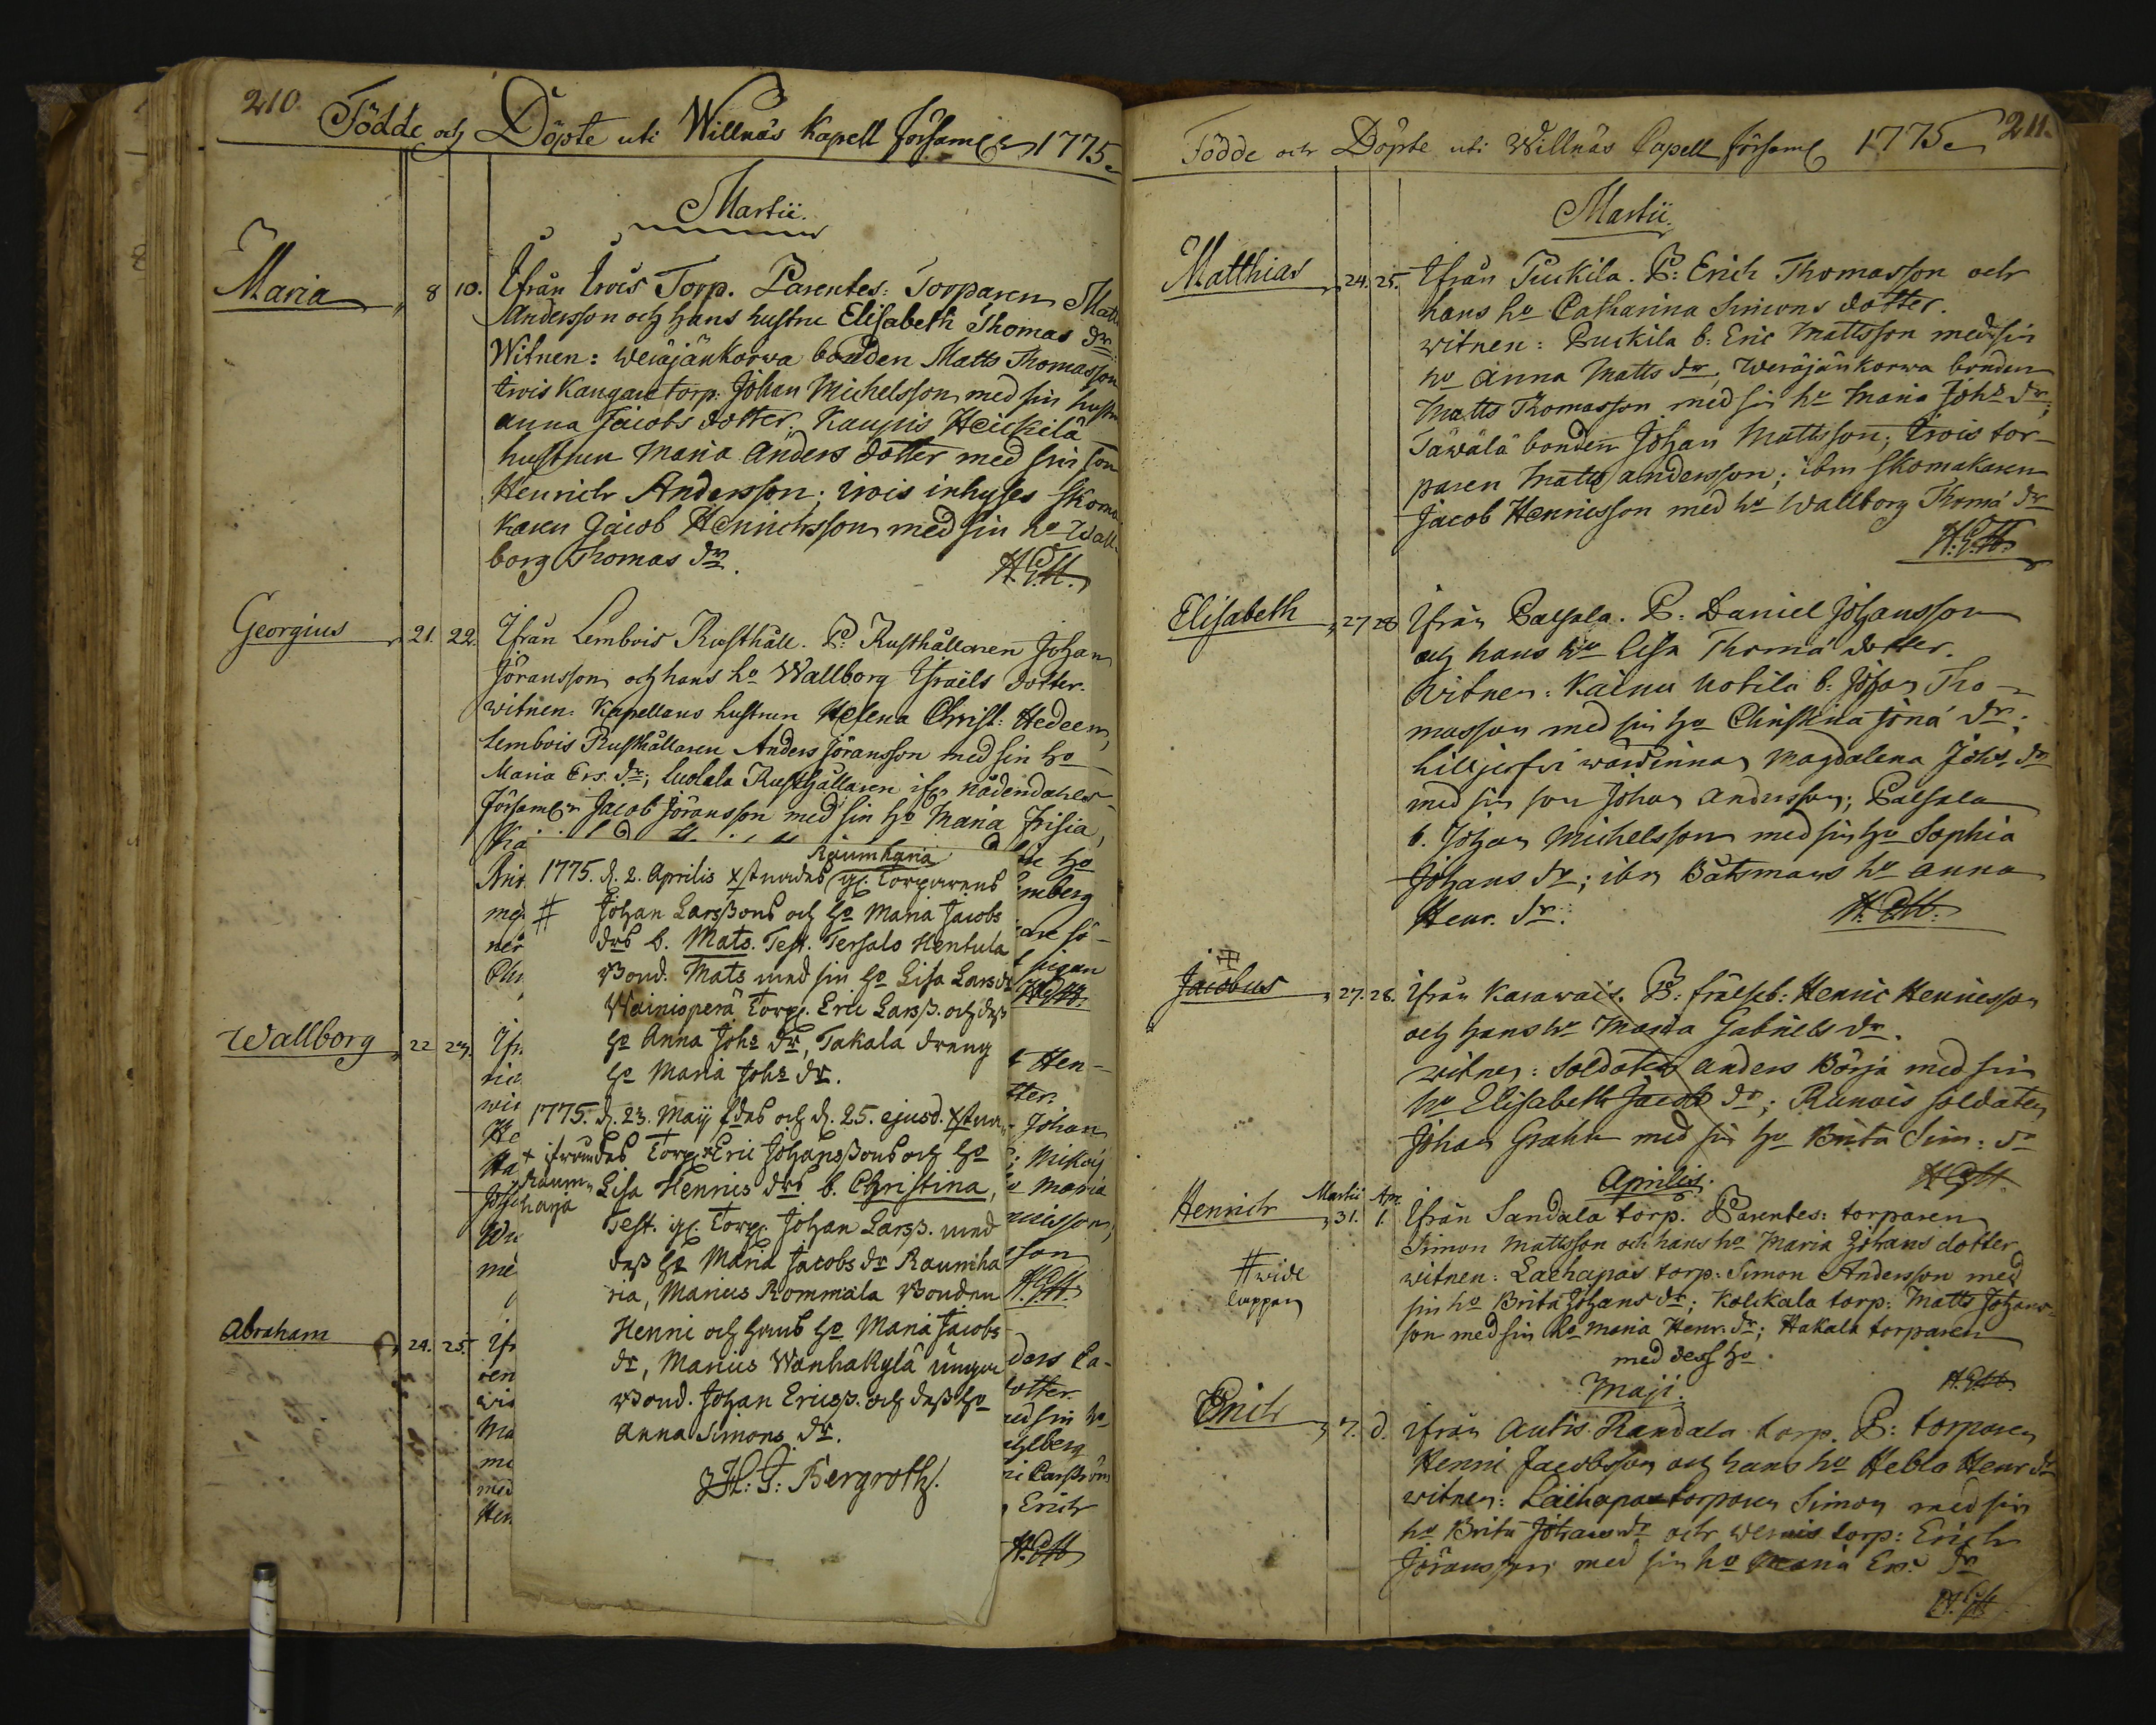 210.
Födde och Döpte uti Willnäs Kapell Församl 1775
Martii.
Maria
8 10. Ifrån Irois Torp. Parentes: Torparen Matts
Andersson och hans hustru Elisabeth Thomas dr
Witnen: Weräjänkorwa bonden Matts Thomasson
Irois Kangare torp: Johan Michelsson med sin hustru
Anna Jacobs dotter; Kaupis Heickilä
hustrun Maria Anders dotter med sin son
Henrich Andersson; irois inhyses Skoma
karen Jacob Henrichsson med sin ho Wall-
borg Thomas dr.
Georgius
21. 22. Ifrån Lembois Rusthåll. P: Rusthållaren Johan
Jöransson och hans ho Wallborg Israels dotter.
witnen: Kapellans hustrun Helena Christ: Hedeen,
Lembois Rusthållaren Anders Jöransson med sin ho
Maria Ers. dr; Luolala Rusthållaren ifr nådendahls
Församl Jacob Jöransson med sin ho Maria Frisia,
Raumkaria
1775. d. 2. Aprilis xstnades Torparens
# Johan Larssons och ho Maria Jacobs
drs b. Mats. Test. Tersalo Hentula
Bond. Mats med sin ho Lisa Lars dr
Wainiopera Torp. Eric Larss. och dess
ho Anna Johs dr, Takala dreng
ho Maria Johs dr.
1775. d. 23. Maij fdes och d. 25. ejusd. xstna-
Torp. Eric Johanssons och ho
Raum-
haria
Lisa Hennis drs b. Christina,
Test. Torp. Johan Larss. med
dess ho Maria Jacobs dr Raumha
ria, Marius Rommala Bonden
Henni och hans ho Maria Jacobs
dr, Marius Wanhakylä unga
Bond. Johan Ericss. och dess ho
Anna Simons dr.
H: G: Bergroth.
Wallborg
22 23.
Hen-
tter.
Johan
; Mikoij
Maria
son
Abraham
24. 25.
ders Ca-
dotter.
med sin ho
Erich
211.
Födde och Döpte uti Willnäs Capell Församl 1775
Martii.
Matthias
24. 25. Ifrån Puckila. P: Erich Thomasson och
hans ho Catharina Simons dotter.
witnen: Puckila b: Eric Mattsson med sin
ho Anna Matts dr, Weräjänkorwa bonden
Matts Thomasson med sin ho Maria Johs dr;
Täwälä bonden Johan Mattsson; Irois tor-
paren Matts Andersson; ibm Skomakaren
Jacob Hennisson med ho Wallborg Thomæ dr
Elisabeth
27 28 Ifrån Palsala. P: Daniel Johansson
och hans ho Lisa Thomæ dotter.
Witnen: Kainu Uotila b: Johan Tho-
masson med sin ho Christina Jona dr;
wärdinnan Magdalena Johs dr
med sin son Johan Andersson; Palsala
b. Johan Michelsson med sin ho Sophia
Johans dr; ibm Båtsmans ho Anna
Henr. dr.
Jacobus
27. 28. Ifrån Karawais. P: frälseb: Henric Hennisson
och hans ho Maria Gabriels dr.
witnen: Soldaten Anders Börja med sin
ho Elisabeth Jacobs dr; Runois soldaten
Johan Grahn med sin ho Brita Sim: dr
Aprilis.
Henrich
Martii Apr.
31. 1. Ifrån Sandala torp. Parentes: torparen
Simon Mattsson och hans ho Maria Johans dotter
# wide
lappen
witnen: Laehapas torp: Simon Andersson med
sin ho Brita Johans dr; Kolckala torp: Matts Johans-
son med sin ho Maria Henr. dr; Hakala torparen
med dess ho
Maji.
Erich
7. d. Ifrån Autis Randala torp. P: torparen
Henni Jacobsson och hans ho Hebla Henr dr
witnen: Laehapas torparen Simon med sin
ho Brita Johans dr och Wernis torp: Erich
Jöransson med sin ho Maria Ers. dr